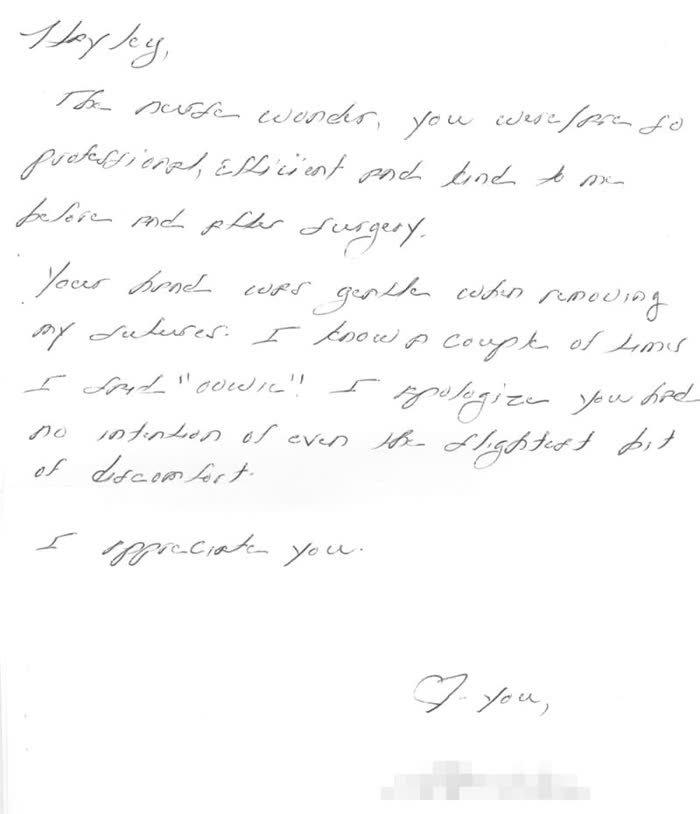 Hayley,
The nurse wonder, you were/are so
professional, efficient and kind to me
before and after surgery.
Your hand was gentle when removing
my sutures. I know a couple of times
I said "oowie"! I apologize you had
no intention of even the slightest bit
of discomfort.
I appreciate you.
♡ you,